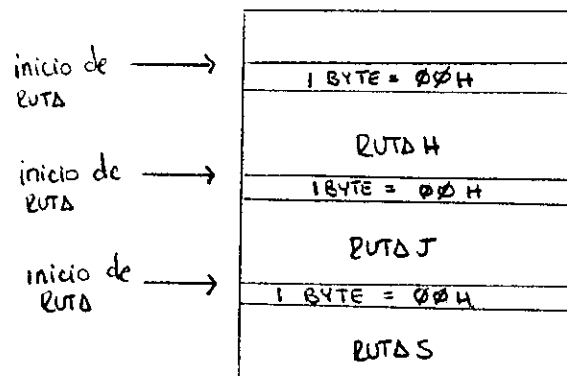 inicio de
RUTA
1 BYTE = 00H
RUTA H
inicio de
RUTA
1 BYTE = 00H
RUTA J
inicio de
RUTA
1 BYTE = 00H
RUTA S